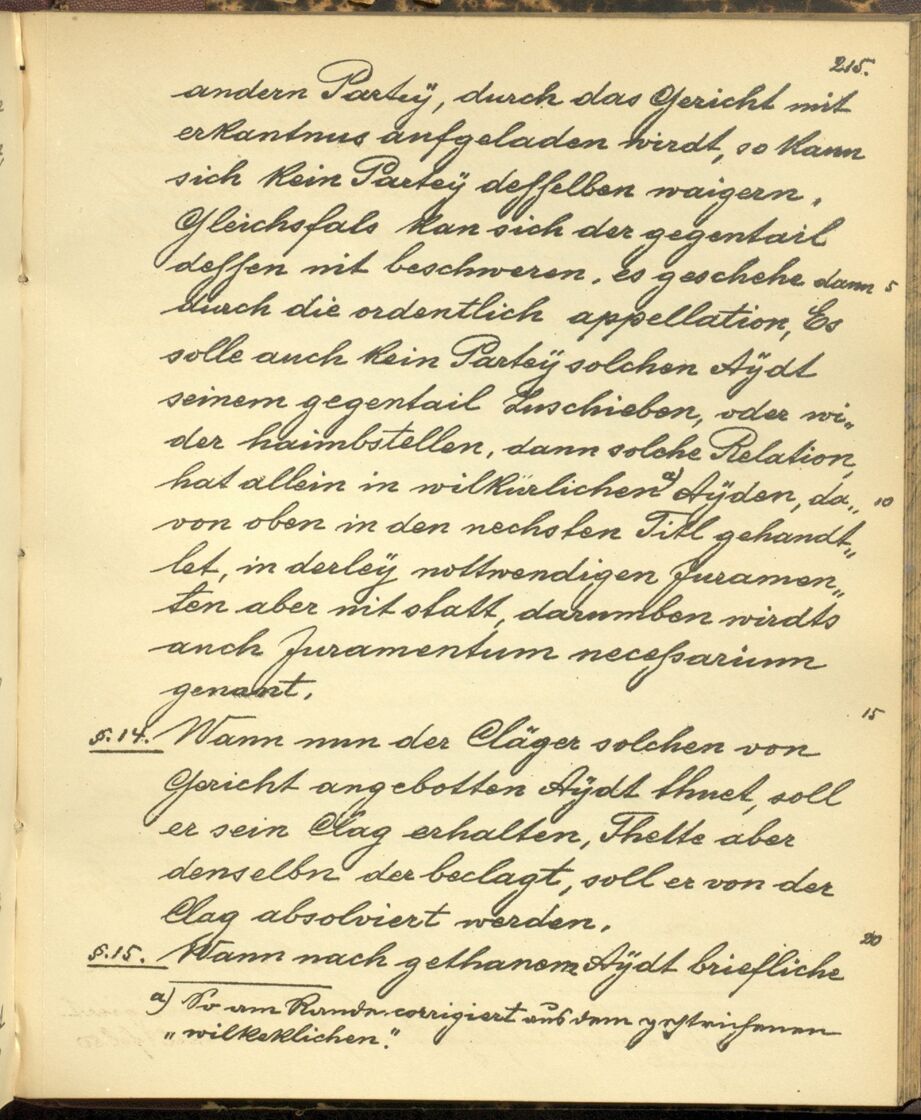 215.
andern Parteÿ, durch das Gericht mit
erkantnus aufgeladen wirdt, so kann
sich kein Parteÿ desselben waigern.
Gleichsfals kan sich der gegentail
dessen nit beschweren, es geschehe dann 5
durch die ordentlich appellation, Es
solle auch kein Parteÿ solchen Aÿdt
seinem gegentail Zuschieben, oder wi„
der haimbstellen, dann solche Relation,
hat allein in wilkürlichen a) Aÿden, da„ 10
von oben in den nechsten Titl gehandt„
let, in derleÿ nottwendigen Juramen„
ten aber nit statt, darumben wirdts
auch Juramentum necessarium
genant. 15
§. 14. Wann nun der Cläger solchen von
Gericht angebotten Aÿdt thuet, soll
er sein Clag erhalten, Thette aber
denselbn der beclagt, soll er von der
Clag absolviert werden. 20
§. 15. Wann nach gethanem Aÿdt briefliche
a) So am Rande corrigiert aus dem gestrichenen
„wilkeklichen“.